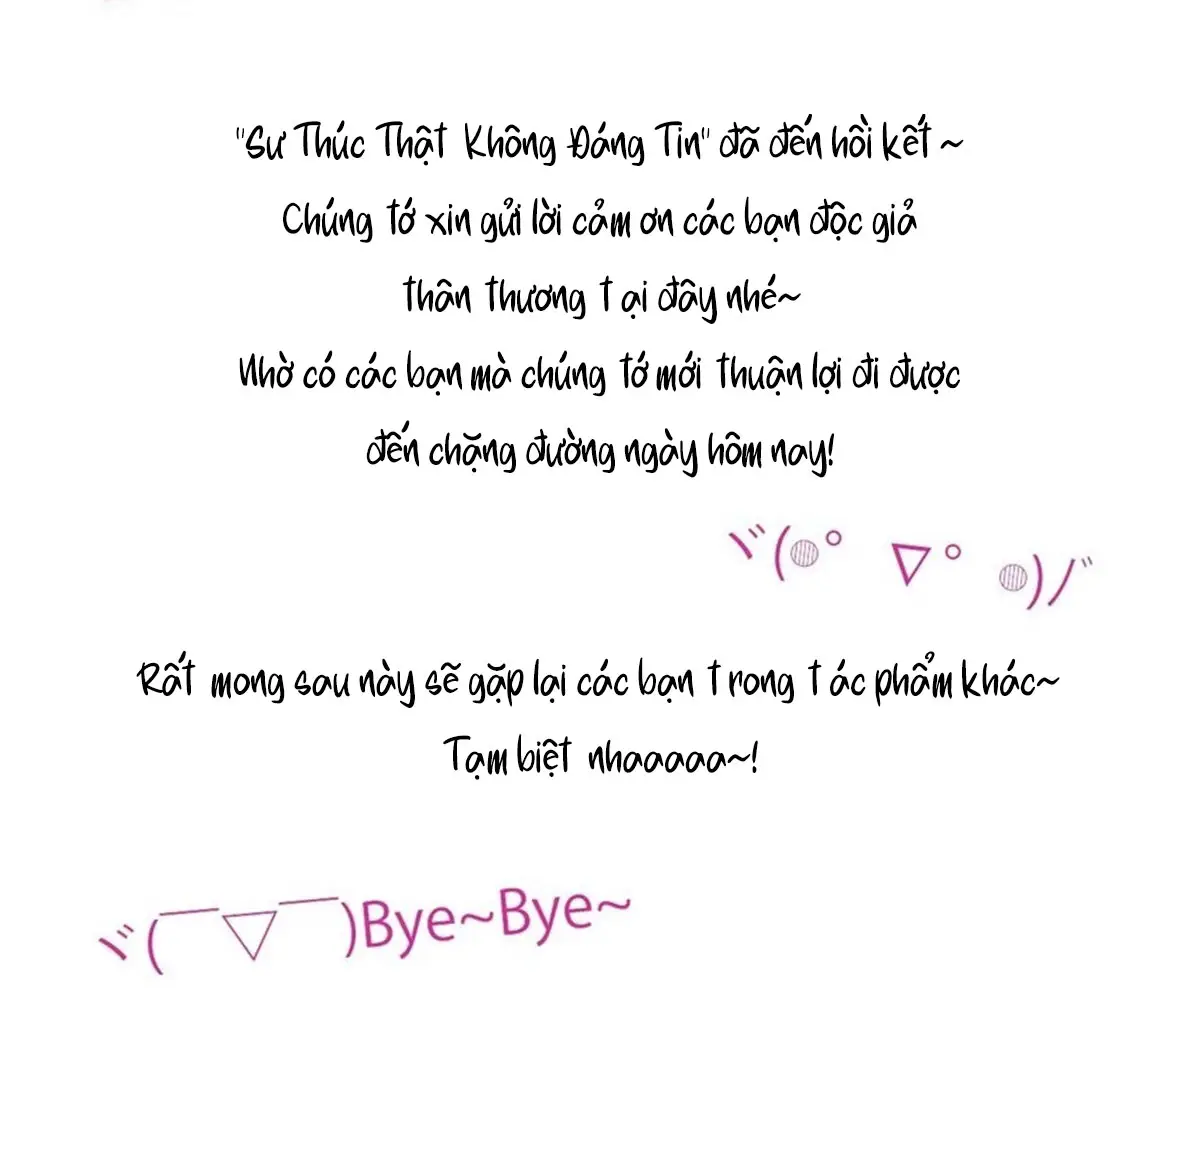 "Sư Thúc Thật Không Đáng Tin" đã đến hồi kết~
Chúng tớ xin gửi lời cảm ơn các bạn độc giả
thân thương tại đây nhé~
Nhờ có các bạn mà chúng tớ mới thuận lợi đi được
đến chặng đường ngày hôm nay!
ヾ(◍°▽°◍)ノ゙
Rất mong sau này sẽ gặp lại các bạn trong tác phẩm khác~
Tạm biệt nhaaaaa~!
ヾ(￣▽￣)Bye~Bye~